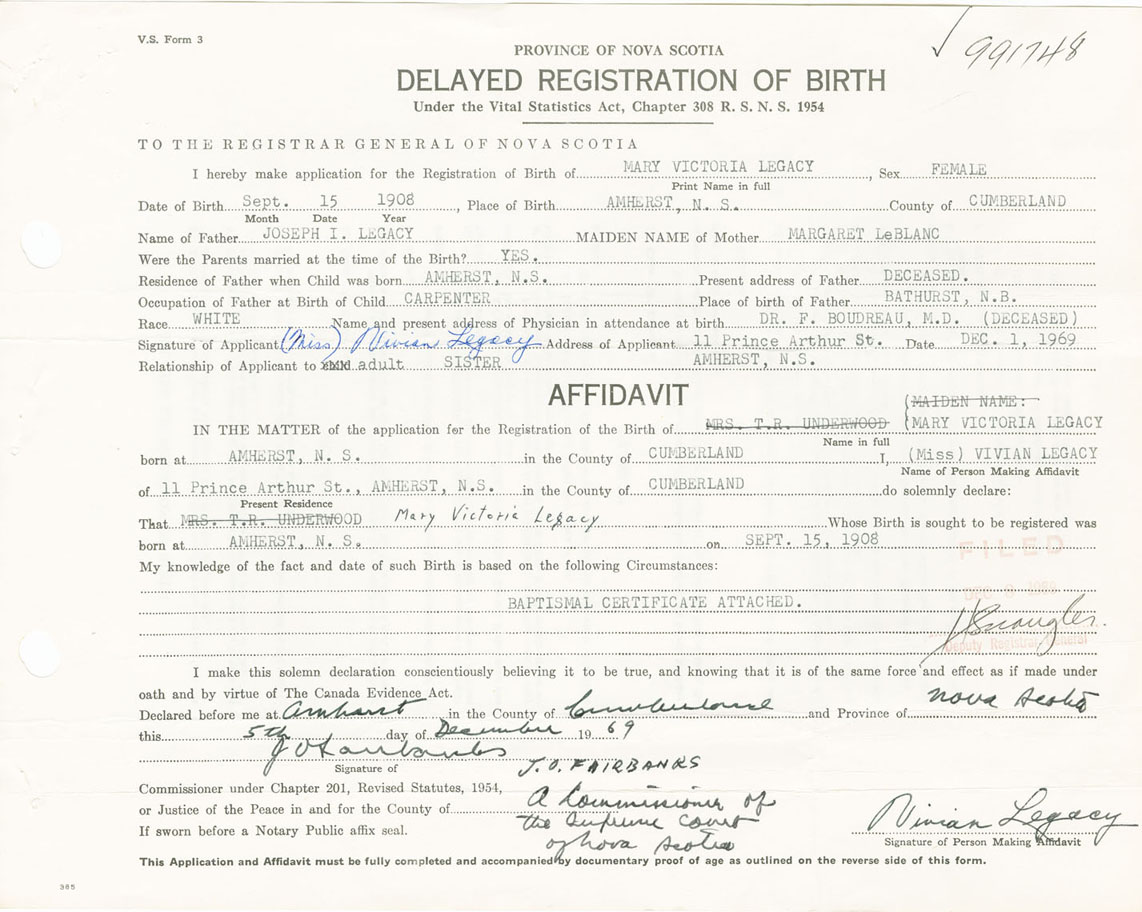 V.S. Form 3
991748
PROVINCE OF NOVA SCOTIA
DELAYED REGISTRATION OF BIRTH
Under the Vital Statistics Act, Chapter 308 R. S. N. S. 1954
TO THE REGISTRAR GENERAL OF NOVA SCOTIA
I hereby make application for the Registration of Birth of MARY VICTORIA LEGACY, Sex FEMALE
Print Name in full
Date of Birth Sept. 15 1908, Place of Birth AMHERST, N. S. County of CUMBERLAND
Month Date Year
Name of Father JOSEPH I. LEGACY MAIDEN NAME of Mother MARGARET LeBLANC
Were the Parents married at the time of the Birth? YES.
Residence of Father when Child was born AMHERST, N.S. Present address of Father DECEASED.
Occupation of Father at Birth of Child CARPENTER Place of birth of Father BATHURST, N.B.
Race WHITE Name and present address of Physician in attendance at birth DR. F. BOUDREAU, M.D. (DECEASED)
Signature of Applicant (Miss) Vivian Legacy Address of Applicant 11 Prince Arthur St. Date DEC. 1, 1969
Relationship of Applicant to child adult SISTER AMHERST, N.S.
AFFIDAVIT
(MAIDEN NAME:
IN THE MATTER of the application for the Registration of the Birth of MRS. T.R. UNDERWOOD (MARY VICTORIA LEGACY
Name in full
born at AMHERST, N. S. in the County of CUMBERLAND I, (Miss) VIVIAN LEGACY
Name of Person Making Affidavit
of 11 Prince Arthur St., AMHERST, N.S. in the County of CUMBERLAND do solemnly declare:
Present Residence
That MRS. T.R. UNDERWOOD Mary Victoria Legacy Whose Birth is sought to be registered was
born at AMHERST, N. S. on SEPT. 15, 1908
FILED
My knowledge of the fact and date of such Birth is based on the following Circumstances:
BAPTISMAL CERTIFICATE ATTACHED.
Deputy Registrar General
I make this solemn declaration conscientiously believing it to be true, and knowing that it is of the same force and effect as if made under
oath and by virtue of The Canada Evidence Act.
Declared before me at Amherst in the County of Cumberland and Province of Nova Scotia
this 5th day of December 1969
J O Fairbanks
Signature of
J. O. FAIRBANKS
Commissioner under Chapter 201, Revised Statutes, 1954,
or Justice of the Peace in and for the County of
A Commissioner of
the Supreme Court
of Nova Scotia
If sworn before a Notary Public affix seal.
Vivian Legacy
Signature of Person Making Affidavit
This Application and Affidavit must be fully completed and accompanied by documentary proof of age as outlined on the reverse side of this form.
385